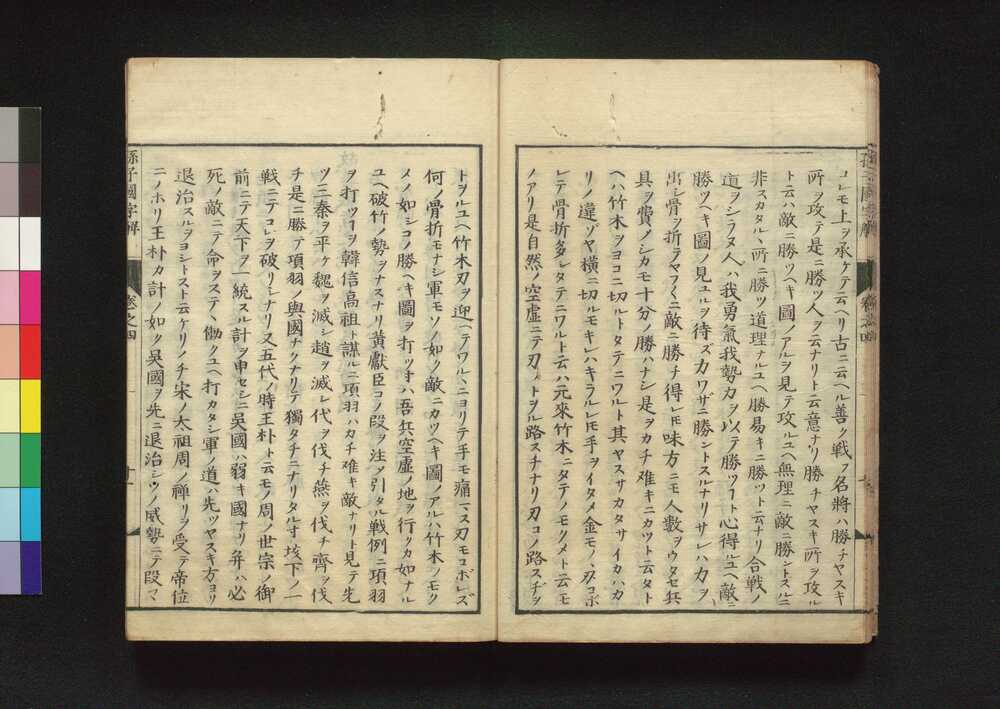 コレモ上ヲ承ケテ云ヘリ古ニ云ヘル善ク戦フ名将ハ勝チヤスキ
所ヲ攻テ是ニ勝ツ人ヲ云ナリト云意ナリ勝チヤスキ所ヲ攻ル
ト云ハ敵ニ勝ツヘキ圖ノアルヲ見テ攻ルユヘ無理ニ敵ニ勝ントスルニ
非スカタルヽ所ニ勝ツ道理ナルユヘ勝易キニ勝ツト云ナリ合戦ノ
道ヲシラヌ人ハ我勇氣我勢力ヲ以テ勝ツヿト心得ルユヘ敵ニ
勝ツヘキ圖ノ見ユルヲ待ズカワザニ勝ントスルナリサレハ力ヲ
出シ骨ヲ折テヤフ〱ニ敵ニ勝チ得レㇳモ味方ニモ人數ヲウタセ兵
具ヲ費メシカモ十分ノ勝ハナシ是ヲカチ难キニカツト云タト
ヘハ竹木ヲヨコニ切ルトタテニワルト其ヤスサカタサイカハカ
リノ違ゾヤ横ニ切ルモキレハキラルレㇳモ手ヲイタメ金モノヽ刃コボ
レテ骨折多シタテニワルト云ハ元來竹木ニタテノモクメト云モ
ノアリ是自然ノ空虚ニテ刃ノトヲル路スチナリ刃コノ路スヂヲ
トヲルユヘ竹木刃ヲ迎ヘテワルヽニヨリテ手モ痛マス刃モコボレズ
何ノ骨折モナシ軍モソノ如ク敵ニカツヘキ圖ノアルハ竹木ノモク
メノ如シコノ勝ヘキ圖ヲ打ツㇳキハ吾兵空虚ノ地ヲ行クカ如ナル
ユヘ破竹ノ勢ヲナスナリ黄獻臣コノ段ヲ注メ引タル戦例ニ項羽
ヲ打ツヿヲ韓信高祖ト謀ルニ項羽ハカチ难キ敵ナリト見テ先
ツ三秦ヲ平ケ魏ヲ滅シ趙ヲ滅シ代ヲ伐チ燕ヲ伐チ齊ヲ伐
チ是ニ勝テ項羽ノ與國ナクナリテ獨タチニナリタルㇳキ垓下ノ一
戦ニテコレヲ破リシナリ又五代ノ時王朴ト云モノ周ノ世宗ノ御
前ニテ天下ヲ一統スル計ヲ申セシニ吳國ハ弱キ國ナリ弁ハ必
死ノ敵ニテ命ヲステヽ働クユヘ打カタシ軍ノ道ハ先ツヤスキ方ヨリ
退治スルヲヨシトスト云ケリノチ宋ノ太祖周ノ禅リヲ受テ帝位
ニノホリ王朴カ計ノ如ク吳國ヲ先ニ退治シソノ威勢ニテ段々
孫子國字解
卷之四